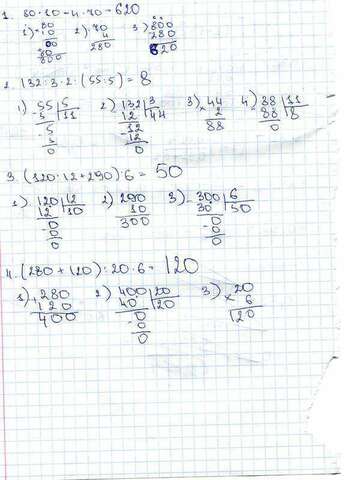 1. 80·10-4·70=620
1) 80 2) 70 3) 800
10 4 280
00 280 620
80
800
2. 132:3·2:(55:5)=8
1) 55 5 2) 132 3 3) 44 4) 88 11
5 11 12 44 2 88 8
5 12 88 0
5 12
0 0
3. (120:12+290):6=50
1) 120 12 2) 290 3) 300 6
12 10 10 30 50
0 300 0
0 0
0 0
4. (280+120):20·6=120
1) 280 2) 400 20 3) 20
120 40 20 6
400 0 120
0
0